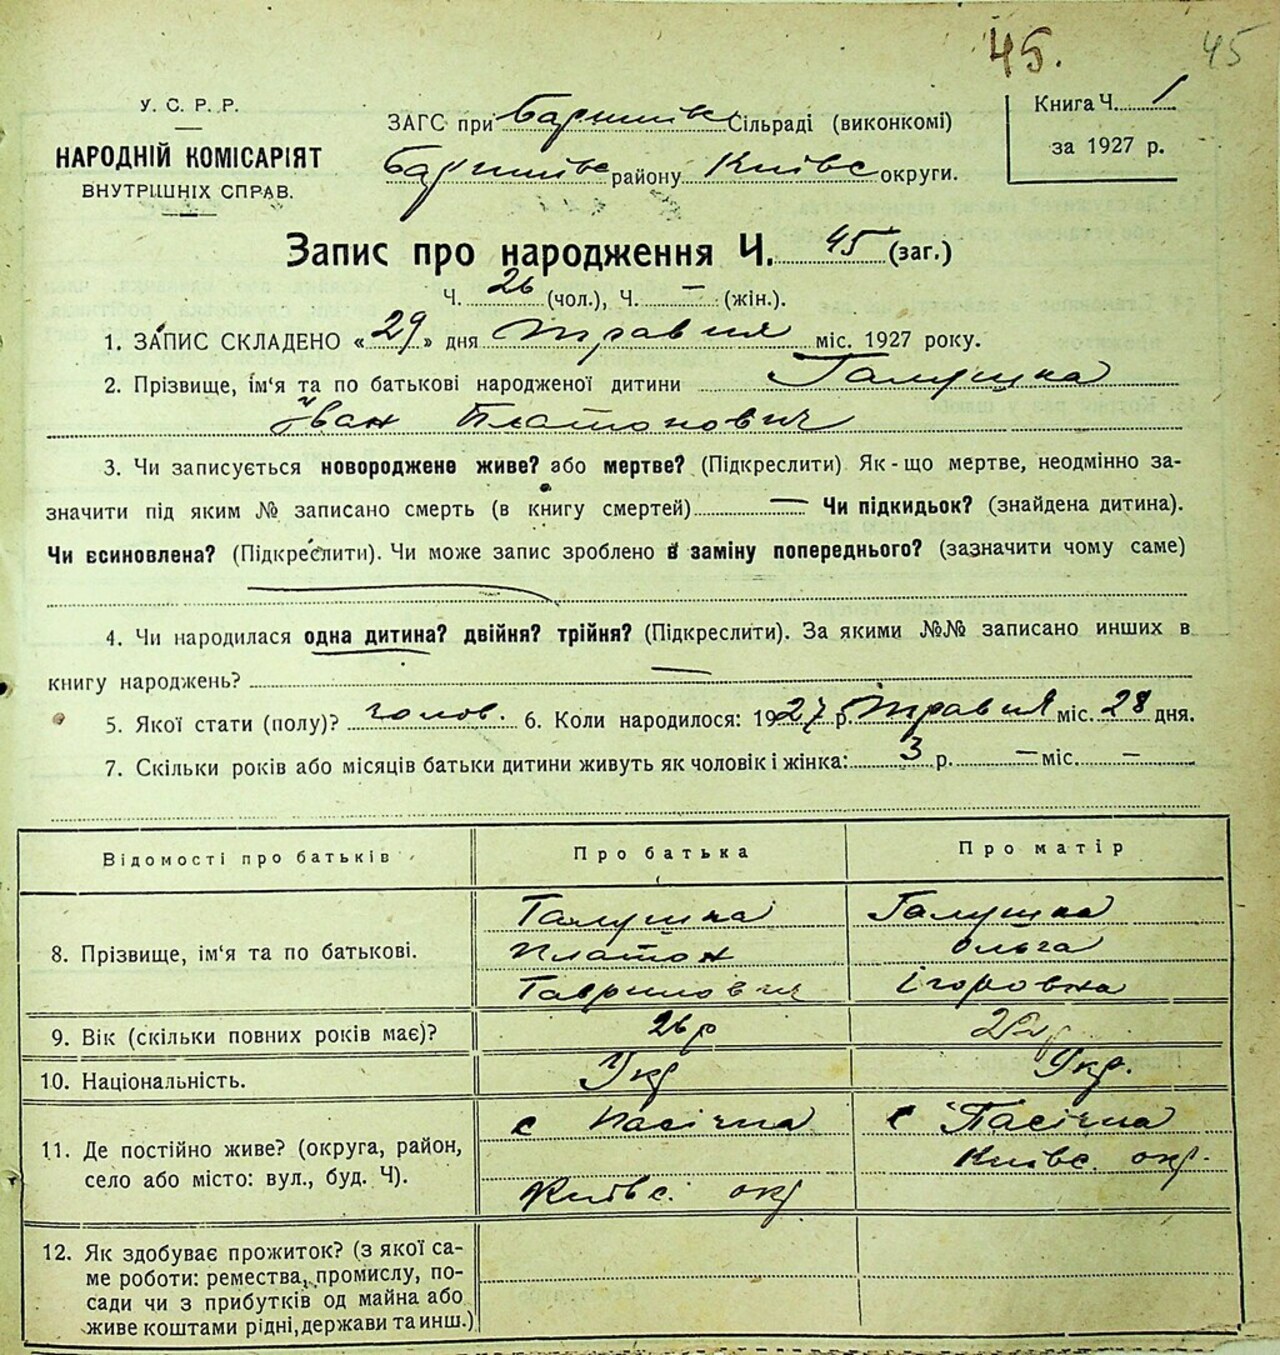 45. 45
У. С. Р. Р.
НАРОДНІЙ КОМІСАРІЯТ
ВНУТРІШНІХ СПРАВ.
ЗАГС при Баришівс Сільраді (виконкомі)
Баришівс району Київс округи.
Книга Ч. 1
за 1927 р.
Запис про народження Ч. 45 (заг.)
Ч. 26 (чол.), Ч. — (жін.).
1. ЗАПИС СКЛАДЕНО «29» дня травня міс. 1927 року.
2. Прізвище, ім‘я та по батькові народженої дитини Галушка
Іван Платонович
3. Чи записується новороджене живе? або мертве? (Підкреслити) Як-що мертве, неодмінно за-
значити під яким № записано смерть (в книгу смертей) — Чи підкидьок? (знайдена дитина).
Чи єсиновлена? (Підкреслити). Чи може запис зроблено в заміну попереднього? (зазначити чому саме)
4. Чи народилася одна дитина? двійня? трійня? (Підкреслити). За якими №№ записано инших в
книгу народжень? —
5. Якої стати (полу)? чолов. 6. Коли народилося: 1927 р. травня міс. 28 дня.
7. Скільки років або місяців батьки дитини живуть як чоловік і жінка: 3 р. — міс. —
Відомості про батьків Про батька Про матір
Галушка Галушка
8. Прізвище, ім‘я та по батькові. Платон Ольга
Гаврилович Ігоровна
9. Вік (скільки повних років має)? 26 р
10. Національність. Укр Укр.
11. Де постійно живе? (округа, район, с Пасічна с Пасічна
село або місто: вул., буд. Ч). Київс. окр.
Київс. окр
12. Як здобуває прожиток? (з якої са-
ме роботи: ремества, промислу, по-
сади чи з прибутків од майна або
живе коштами рідні, держави та инш.)